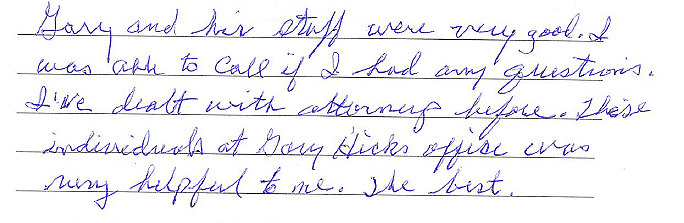 Gary and his stuff were very good. I
was able to call if I had any questions.
I've dealt with attorneys before. These
individuals at Gary Hicks office was
very helpful to me. The best.